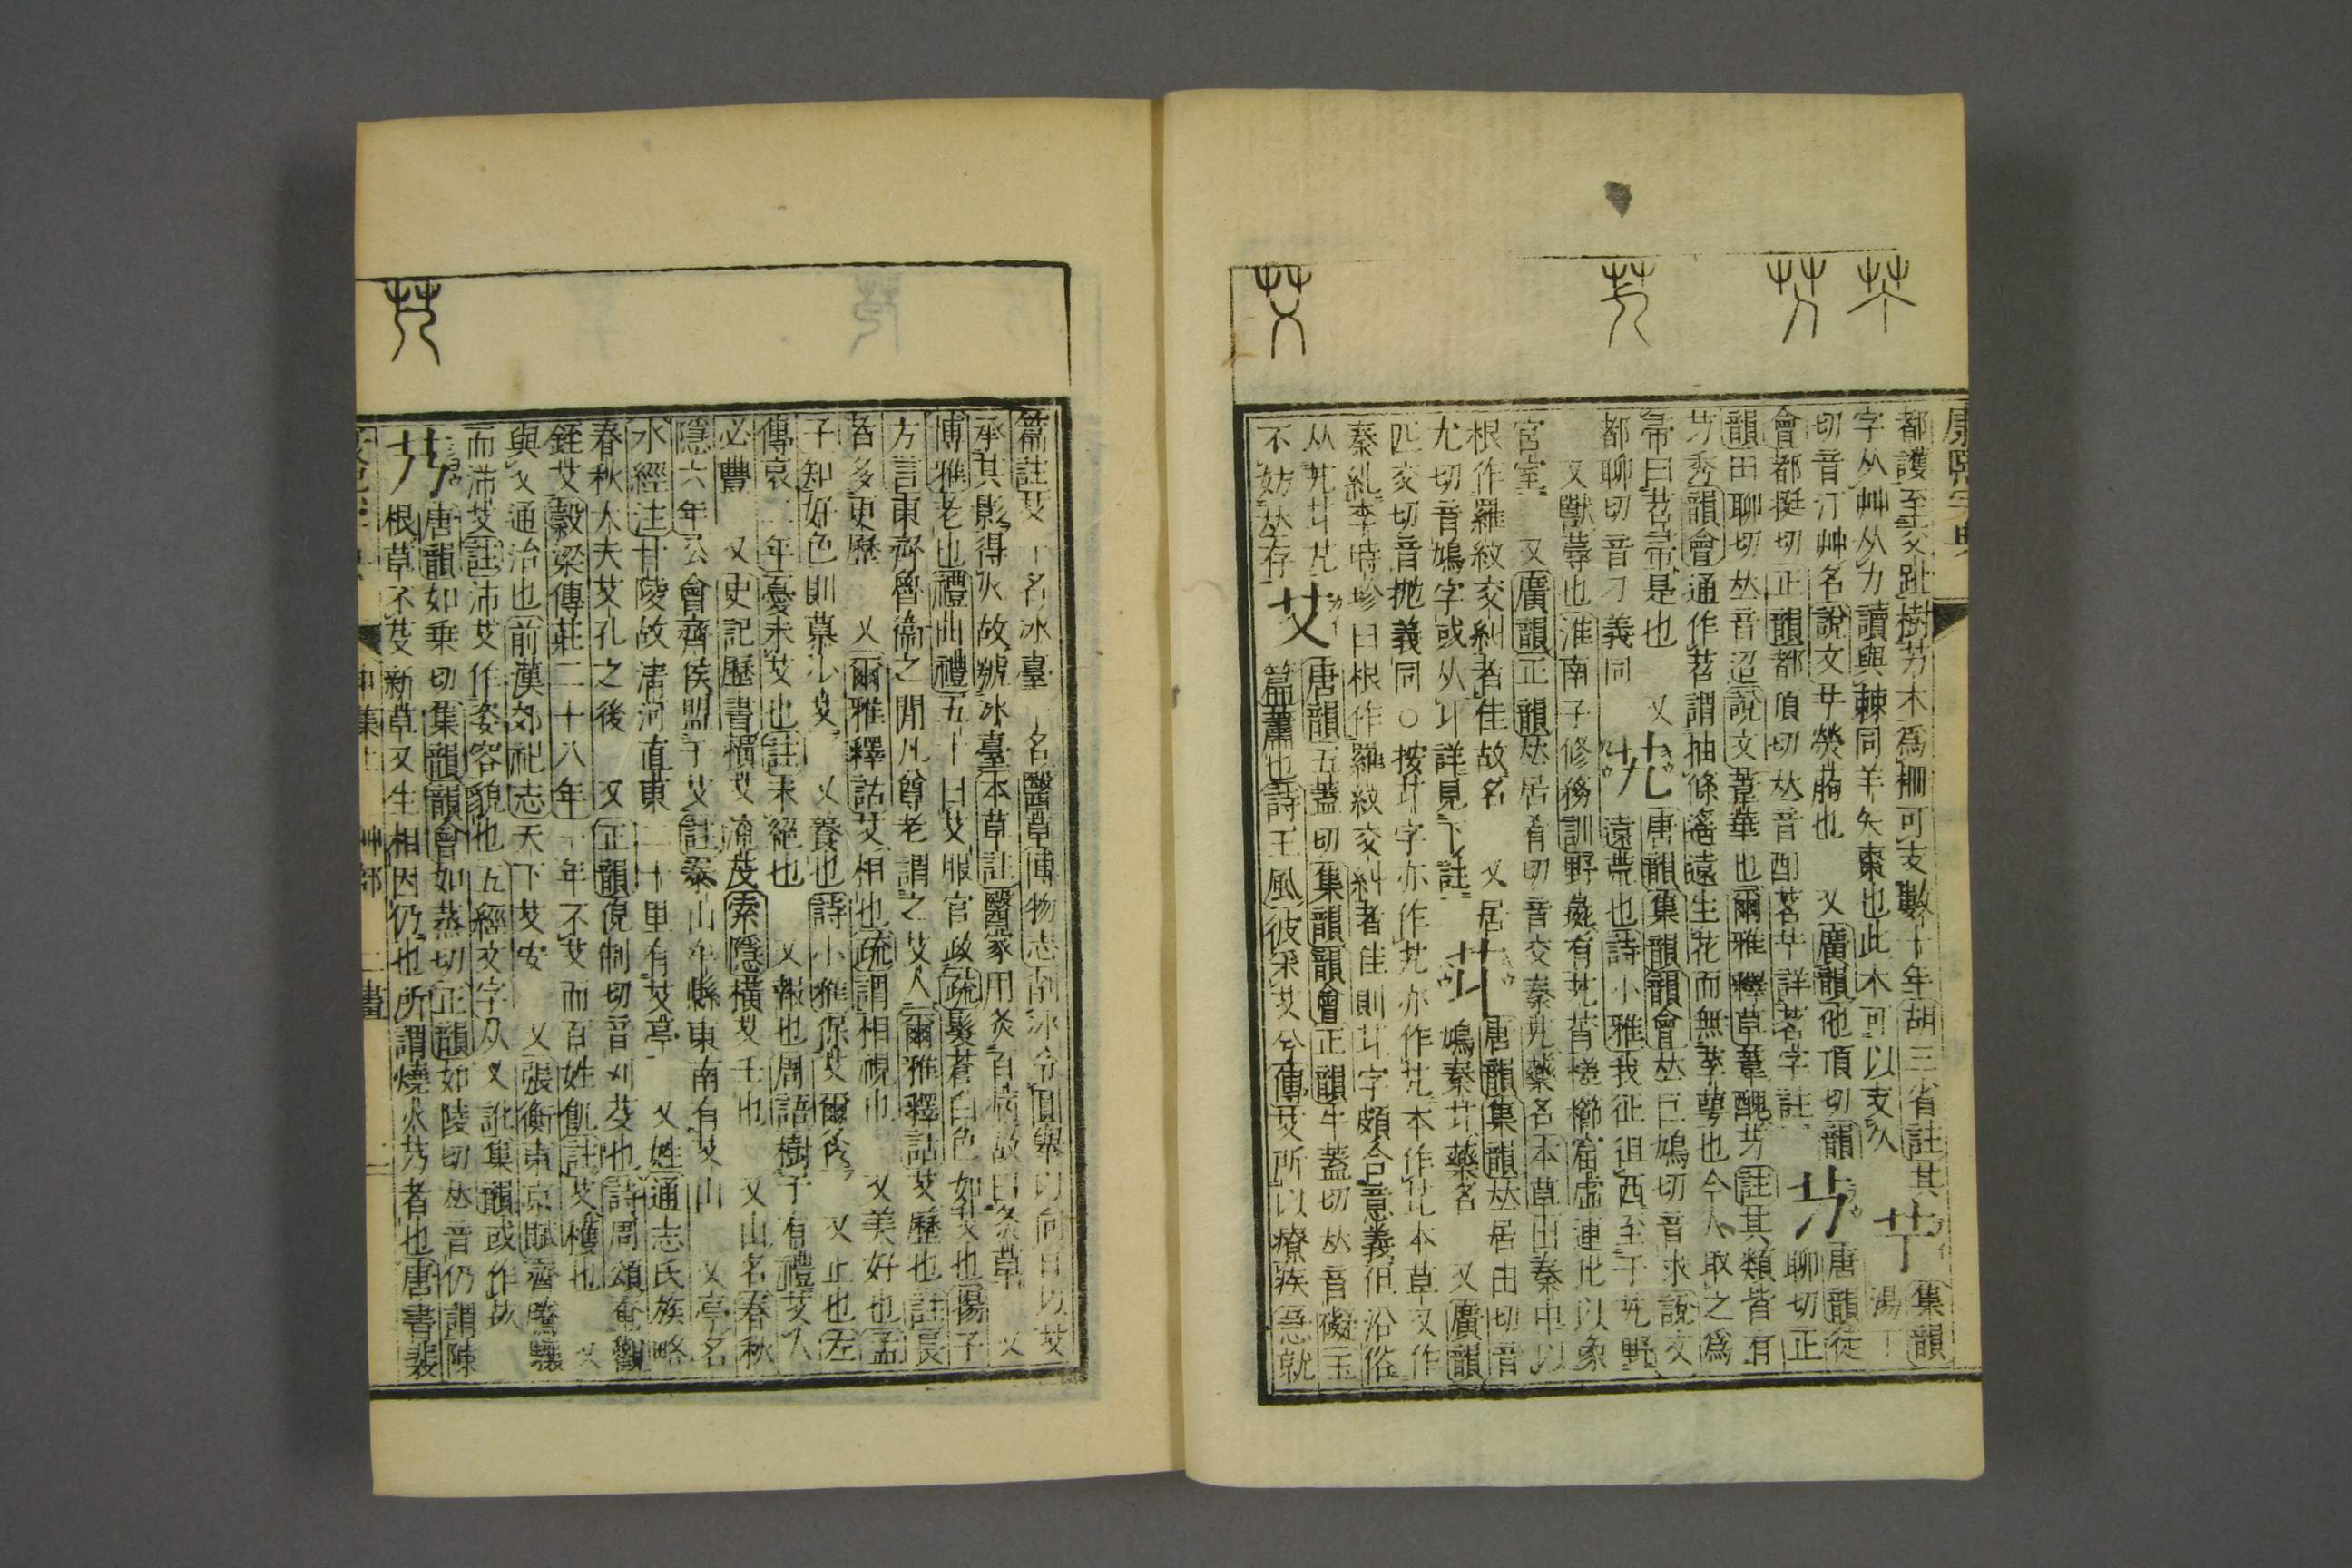 康熙字典
都護至交趾樹艻木爲柵可支數十年胡三省註其
字从艸从力讀與棘同羊矢棗也此木可以支久
芐 集韻湯丁
切音汀艸名說文芐熒朐也 又廣韻他頂切韻
會都挺切正韻都頂切𠀤音酊茗芐詳茗字註
艿 唐韻徒聊切正
韻田聊切𠀤音迢說文葦華也爾雅釋草葦醜艿註其類皆有
艿秀韻會通作苕謂抽條遙遠生花而無莩萼也今人取之爲
帚曰苕帚是也 又
都聊切音刁義同
艽 唐韻集韻韻會𠀤巨鳩切音求說文
遠荒也詩小雅我征徂西至于艽野
又獸蓐也淮南子修務訓野彘有艽莦槎櫛窟虛連比以象
宮室 又廣韻正韻𠀤居肴切音交秦艽藥名本草出秦中以
根作羅紋交糾者佳故名 又居
尤切音鳩字或从丩詳見下註
艽 唐韻集韻𠀤居由切音
鳩秦艽藥名 又廣韻
匹交切音抛義同○按艽字亦作艽亦作艽本作艽本草又作
秦糺李時珍曰根作羅紋交糾者佳則丩字頗合意義但沿俗
不妨𠀤存
艾 唐韻五蓋切集韻韻會正韻牛蓋切𠀤音礙玉
篇蕭也詩王風彼采艾兮傳艾所以療疾急就
篇註艾一名冰臺一名醫草博物志削冰令圓舉以向日以艾
承其影得火故號冰臺本草註醫家用灸百病故曰灸草 又
博雅老也禮曲禮五十曰艾服官政疏髮蒼白色如艾也揚子
方言東齊魯衞之閒凡尊老謂之艾人爾雅釋詁艾歷也註長
者多更歷 又爾雅釋詁艾相也疏謂相視也 又美好也孟
子知好色則慕少艾 又養也詩小雅保艾爾後 又止也左
傳哀二年憂未艾也註未絕也 又報也周語樹于有禮艾人
必豐 又史記歷書橫艾淹茂索隱橫艾壬也 又山名春秋
隱六年公會齊侯盟于艾註泰山牟縣東南有艾山 又亭名
水經注甘陵故淸河直東二十里有艾亭 又姓通志氏族略
春秋大夫艾孔之後 又正韻倪制切音刈芟也詩周頌奄觀
銍艾穀梁傳莊二十八年一年不艾而百姓飢註艾穫也 又
與乂通治也前漢郊祀志天下艾安 又張衡東京賦齊騰驤
而沛艾註沛艾作姿容貌也五經文字从乂訛集韻或作䒳
艿 唐韻如乗切集韻韻會如蒸切正韻如陵切𠀤音仍謂陳
根草不芟新草又生相因仍也所謂燒火艿者也唐書裴
康熙字典
申集上 艸部 二畫